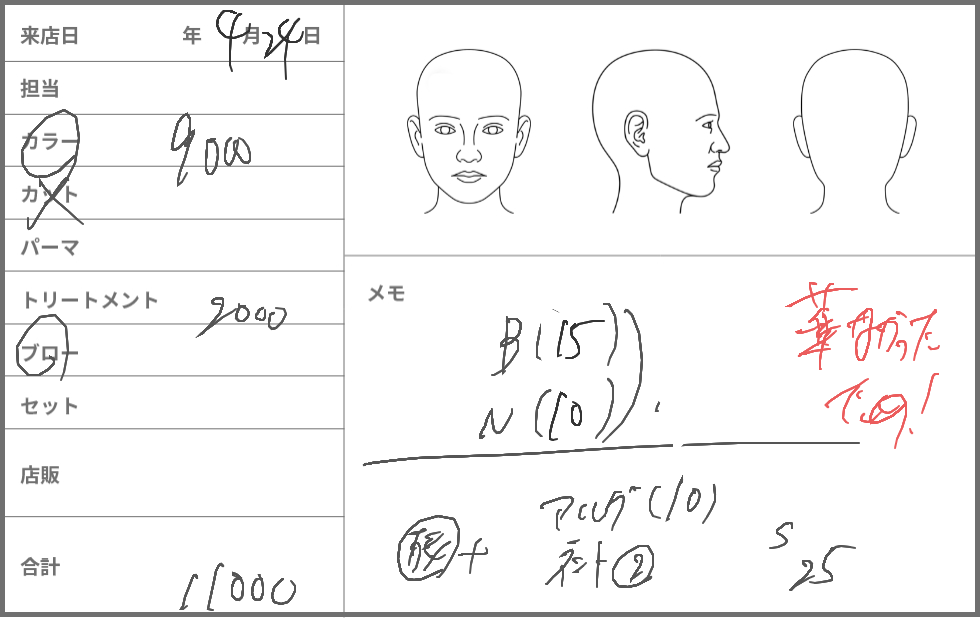 来店日 年 4月24日
担当
カラー 9000
カット
パーマ
トリートメント 2000
ブロー
セット
店販
合計 11000
メモ
B(15)
N(10)
(10)
ネット②
S
25